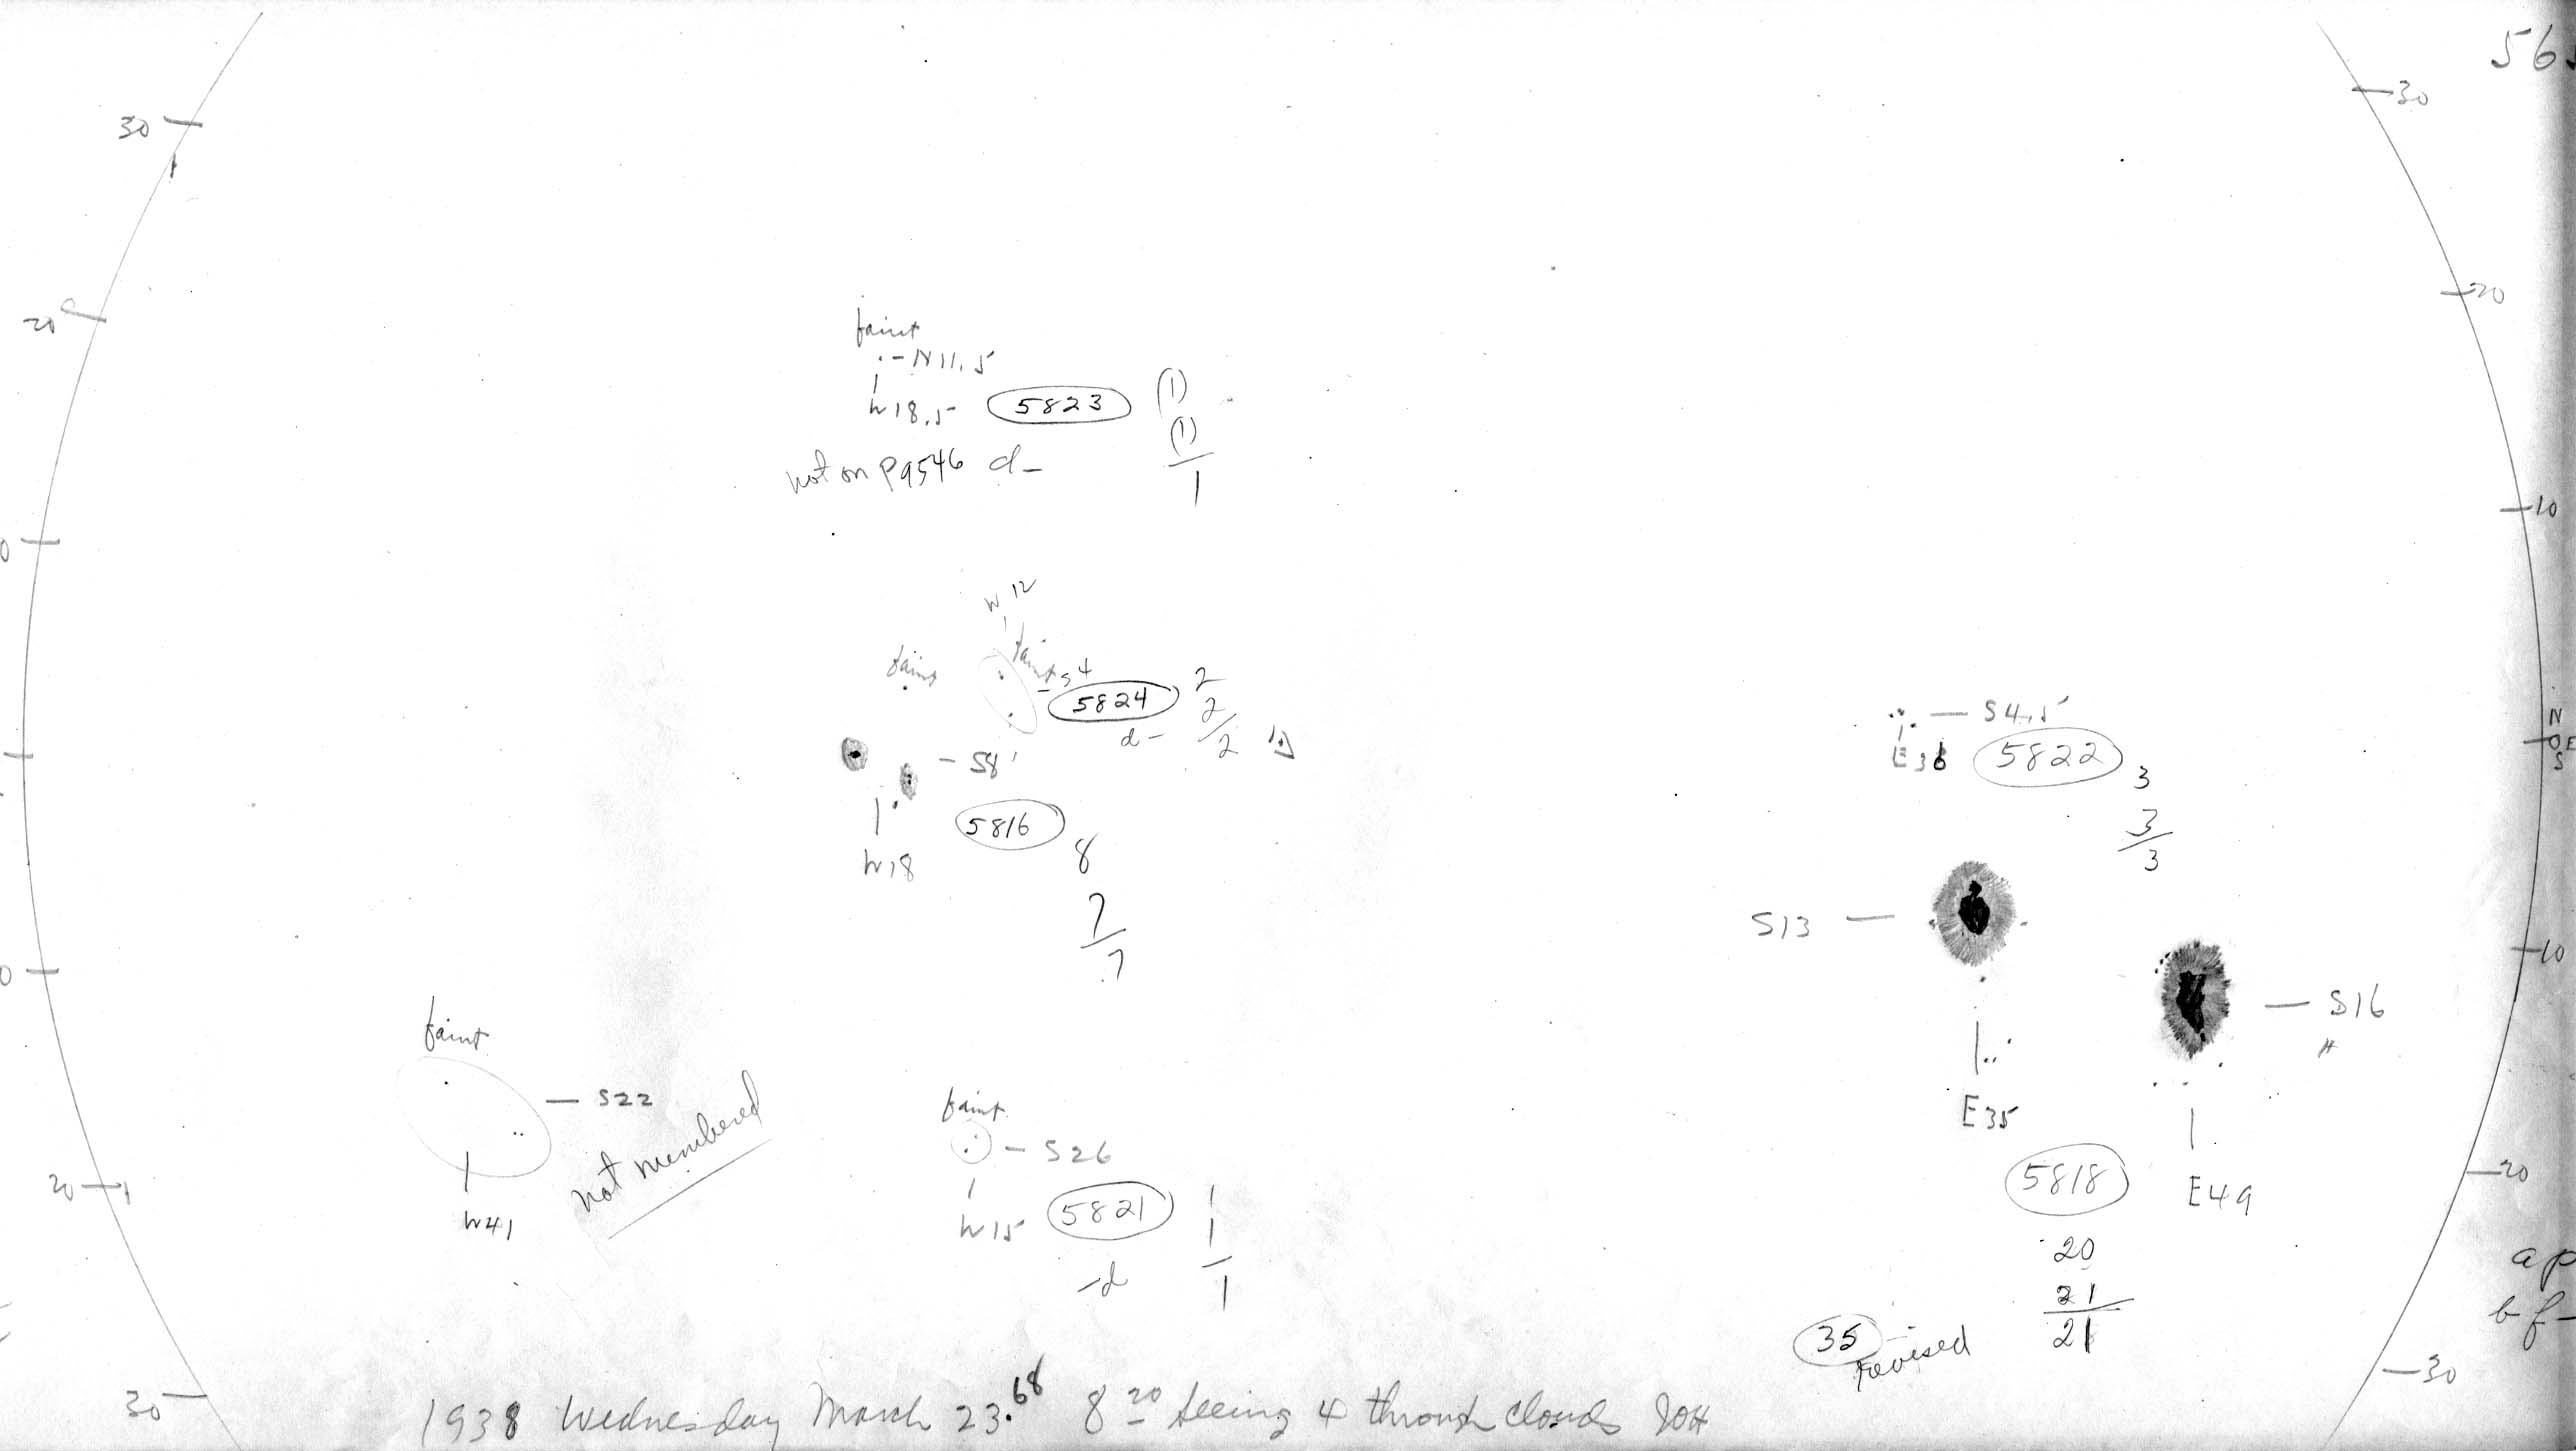 30
30
20
20
10
faint
N11.5
W18.5
5823
(1)
(1)
1
not on P9546 d-
W 12
faint
faint
S4
5824
2
2
2
d-
S8
5816
W18
8
7
7
S4.5
E36
5822
3
3
3
N
0 E
S
S13
10
S16
E35
E49
5818
20
21
21
35
revised
faint
S22
W41
not numbered
faint
S26
W15
5821
1
1
1
-d
20
20
30
30
1938 Wednesday March 23.68 8 20 seeing 4 through clouds JOH